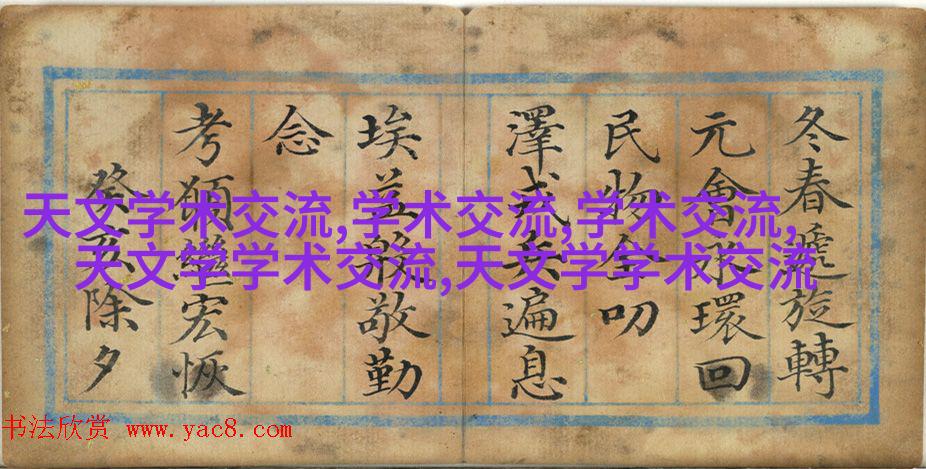 冬春遞旋轉
元會環回
民物全叨
澤戎兵遍息
埃敬勤
念
考願繼宏恢
癸亥除夕
天文学术交流,学术交流,学术交流,
天文学学术交流,天文学学术交流
书法欣赏 www.yac8.com